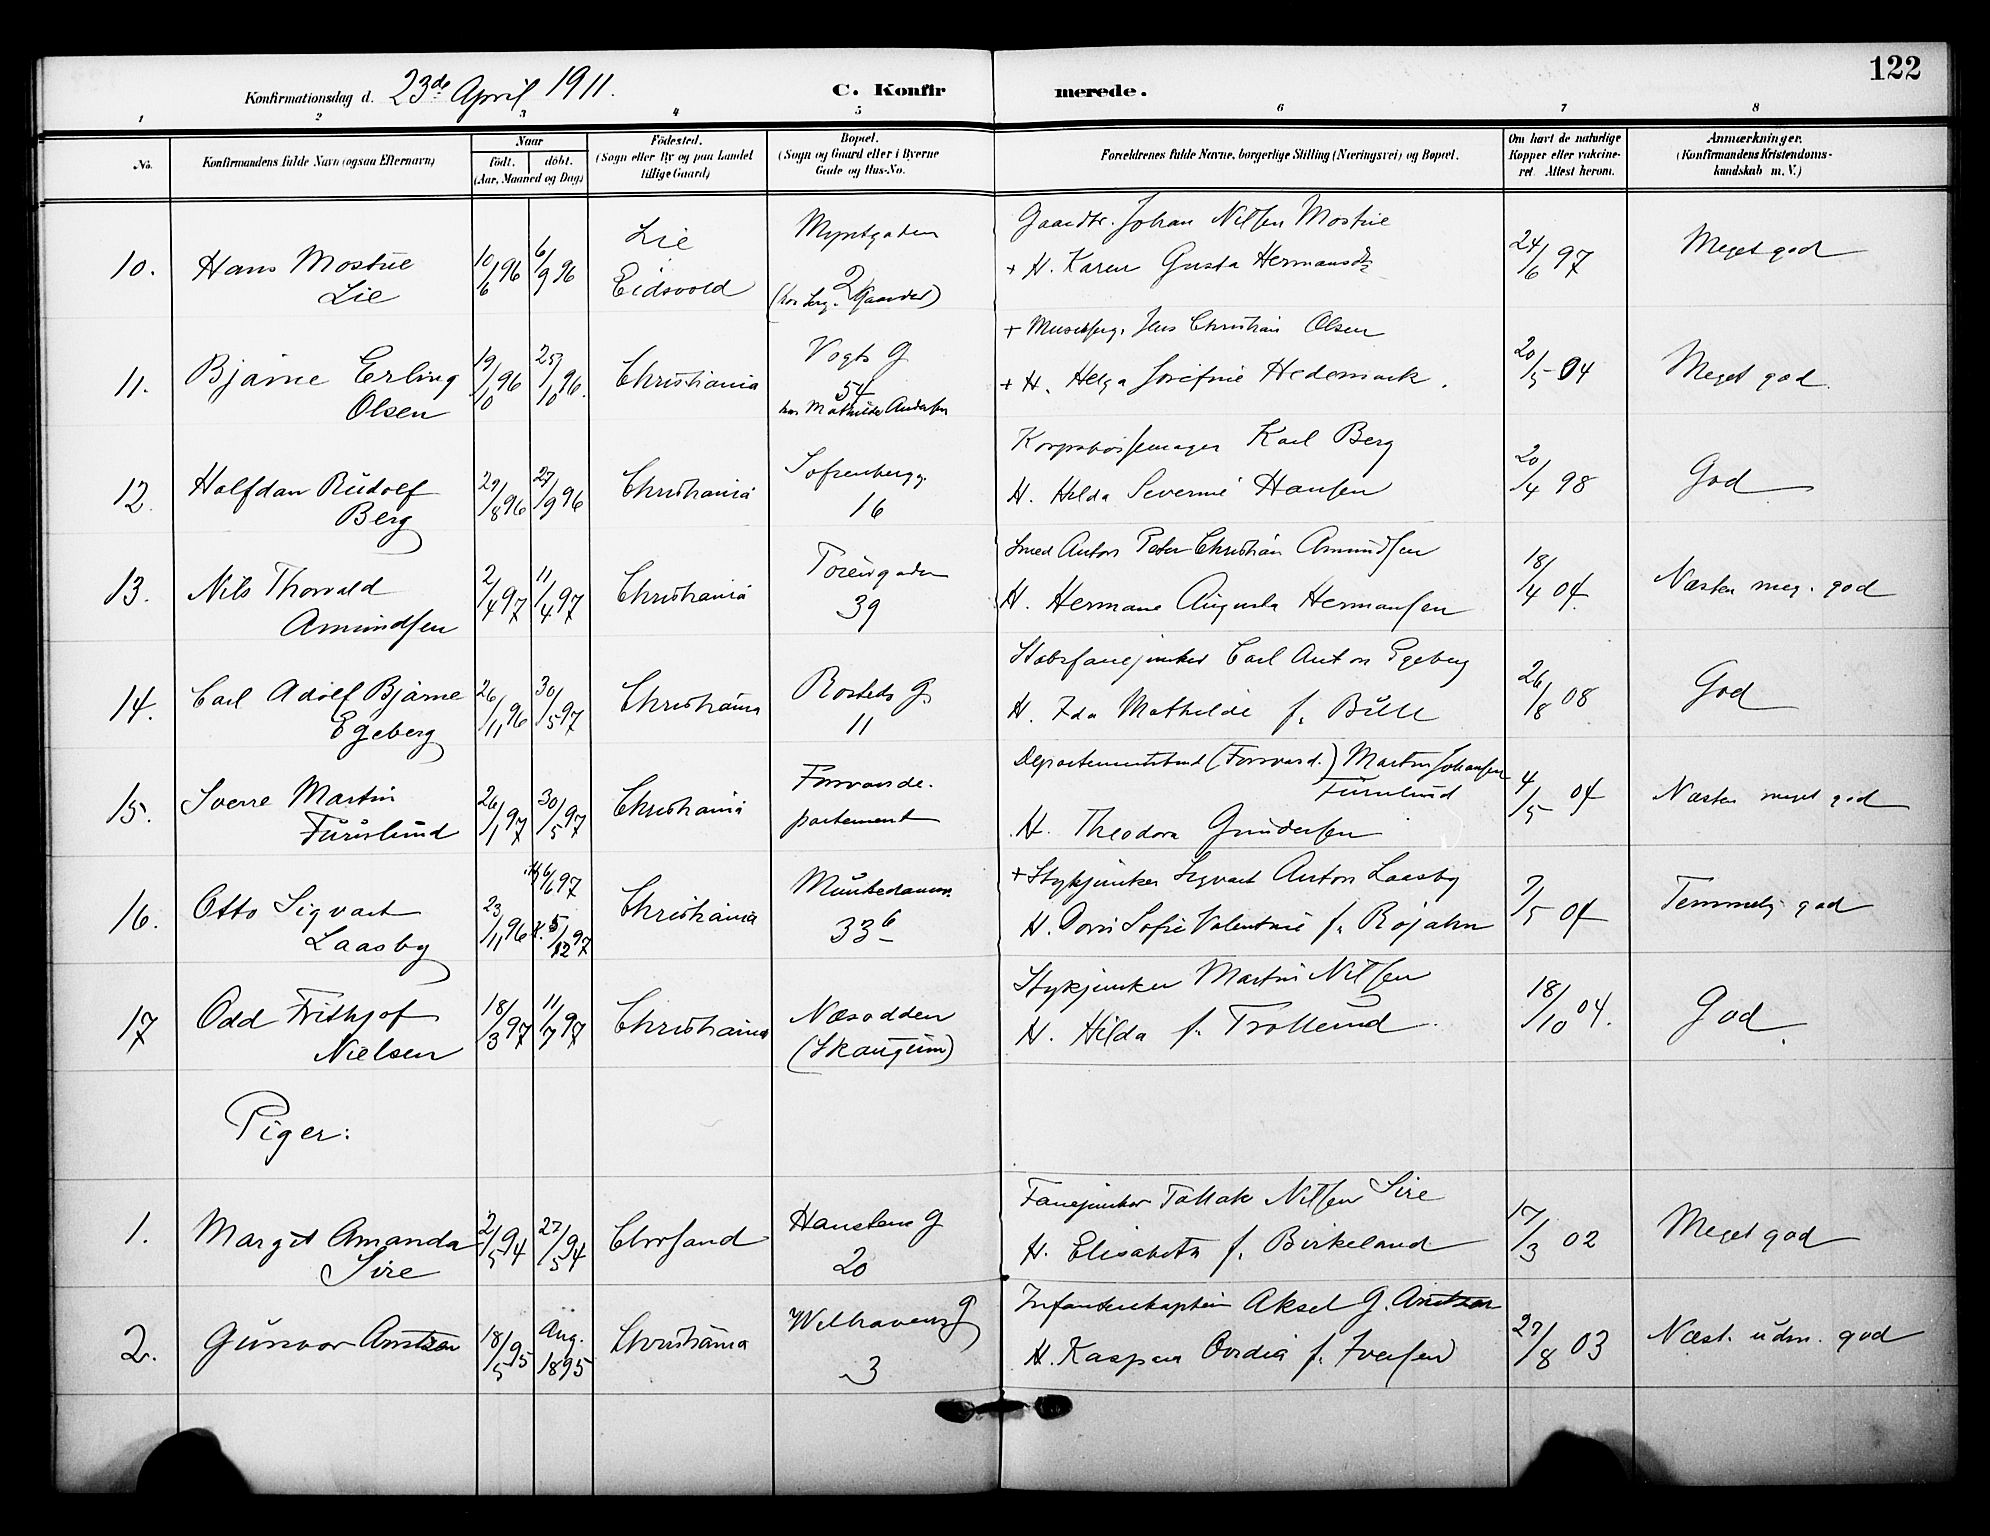 122
Konfirmationsdag d. 23de April 1911.
C. Konfirmerede.
1 2 3 4 5 6 7 8
No.
Konfirmandens fulde Navn (ogsaa Efternavn)
Naar
födt. döbt.
(Aar, Maaned og Dag)
Födested.
(Sogn eller By og paa Landet
tillige Gaard)
Bopæl.
(Sogn og Gaard eller i Byerne
Gade og Hus-No.
Forældrenes fulde Navne, borgerlige Stilling (Næringsvei) og Bopæl.
Om havt de naturlige
Kopper eller vakcine-
ret. Attest herom.
Anmærkninger.
(Konfirmandens Kristendoms-
kundskab m. V.)
10. Hans Mostue
Lie
10/6 96 6/9 96
Lie
Eidsvold
Myntgaden
2
Johan Nilsen Mostue
+ H. Karen Gusta Hermansdt.
24/6 97
Meget god
11. Bjarne Erling
Olsen
19/10 96 25/10 96.
Christiania
Vogts G
54
hos Mathilde Andersen
+ Jens Christian Olsen
+ H. Helga Josefine Hedemark.
20/5 04
Meget god.
12. Halfdan Rudolf
Berg
29/8 96 27/9 96
Christiania
Sofienbergg.
16
Korpsbøssemager Karl Berg
H. Hilda Severine Hansen
20/4 98
God
13. Nils Thorvald
Amundsen
2/4 97 11/4 97
Christiania
Toiengaden
39
Smed Anton Peter Christian Amundsen
H. Hermane Augusta Hermansen
18/4 04.
Næsten meg. god
14. Carl Adolf Bjarne
Egeberg
26/11 96 30/5 97
Christiania
Rosteds G
11
Stabsfanejunker Carl Anton Egeberg
H. Ida Mathilde f. Bull
26/8 08
God
15. Sverre Martin
Furulund
26/1 97 30/5 97
Christiania
Forsvarsde-
partement
Departementsbud (Forsvarsd.) Martin Johansen
Furulund
H. Theodora Gundersen
4/5 04
Næsten meget god
16. Otto Sigvart
Laasby
23/11 96 5/12 97
Christiania
Munkedamsv.
33 b
+ Stykjunker Sigvart Anton Laasby
H. Doris Sofie Valentine f. Rojahn
7/5 04
Temmelig god
17 Odd Frithjof
Nielsen
18/3 97 11/7 97
Christiania
Næsodden
(Skaugum)
Stykjunker Martin Nilsen
H. Hilda f. Trollerud.
18/10 04.
God
Piger:
1. Margit Amanda
Sire
2/5 94 27/5 94
Chrsand
Hansteens G
20
Fanejunker Tallak Nilsen Sire
H. Elisabeth f. Birkeland
17/3 02
Meget god
2. Gunvor Arntzen
18/5 95 Aug. 1895
Christiania
Welhavensg
3
Infanterikaptein Aksel G. Arntzen
H. Kaspara Ovidia f. Iversen
27/8 03
Næst. udm. god